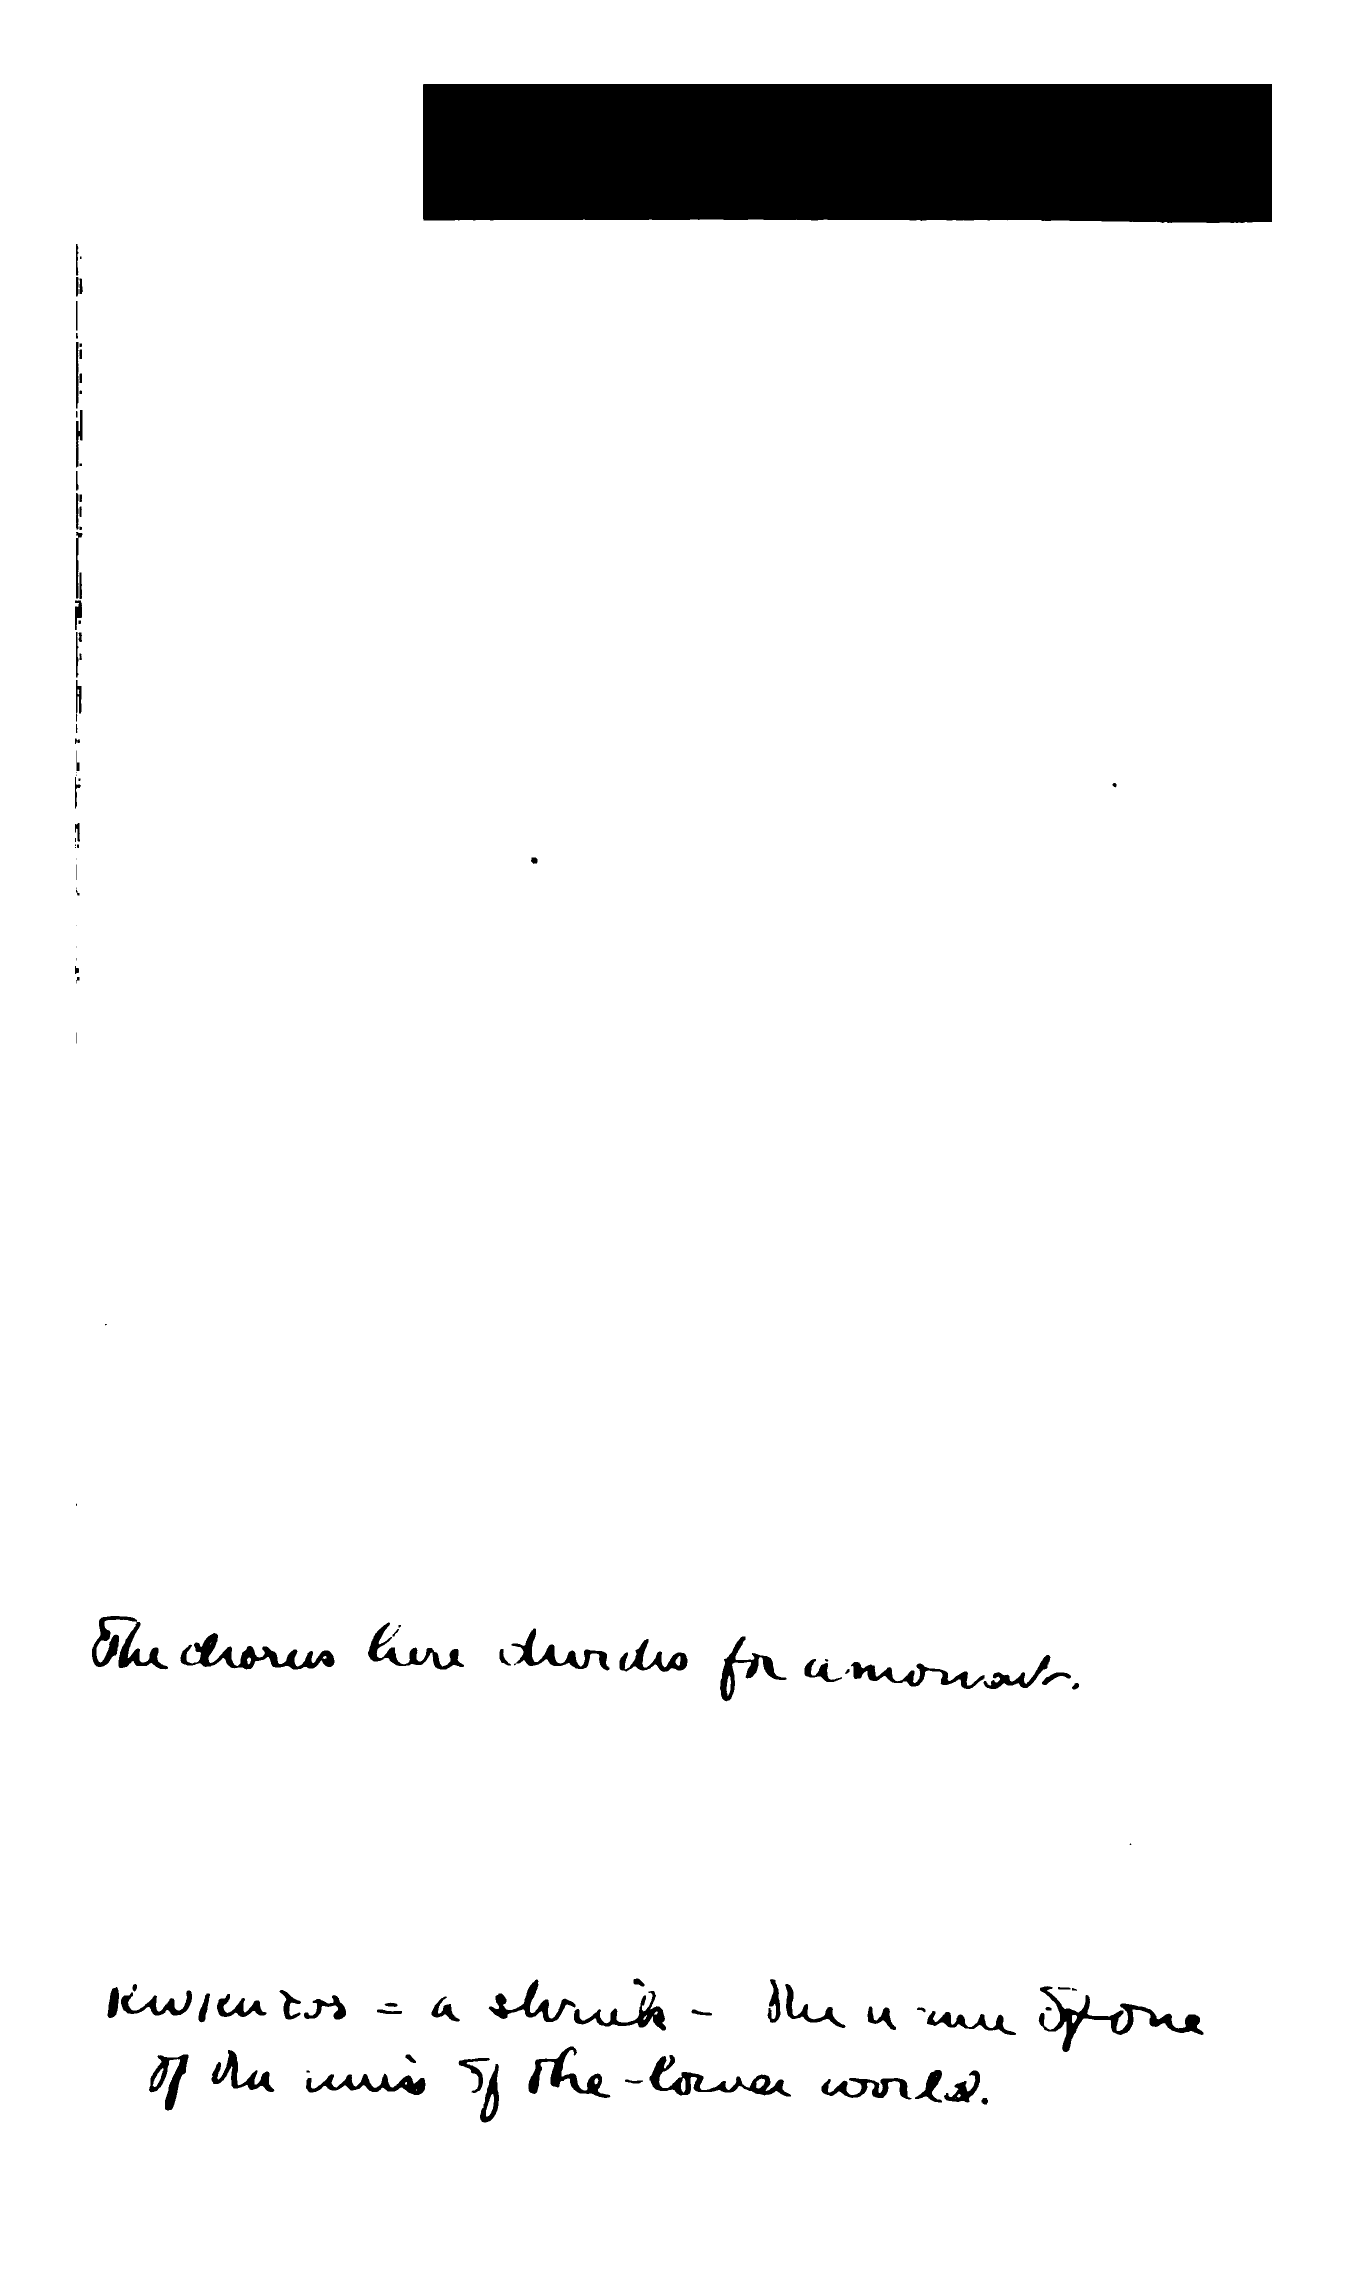 The chorus here divides for a moment.
κωκυτος = a shriek - the name of one
of the rivers of the lower world.